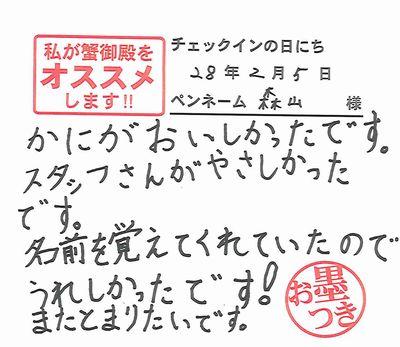 私が蟹御殿を
オススメ
します!!
チェックインの日にち
28年2月5日
ペンネーム 森山 様
かにがおいしかったです。
スタッフさんがやさしかった
です。
名前を覚えてくれていたので
うれしかったです!
またとまりたいです。
お墨つき